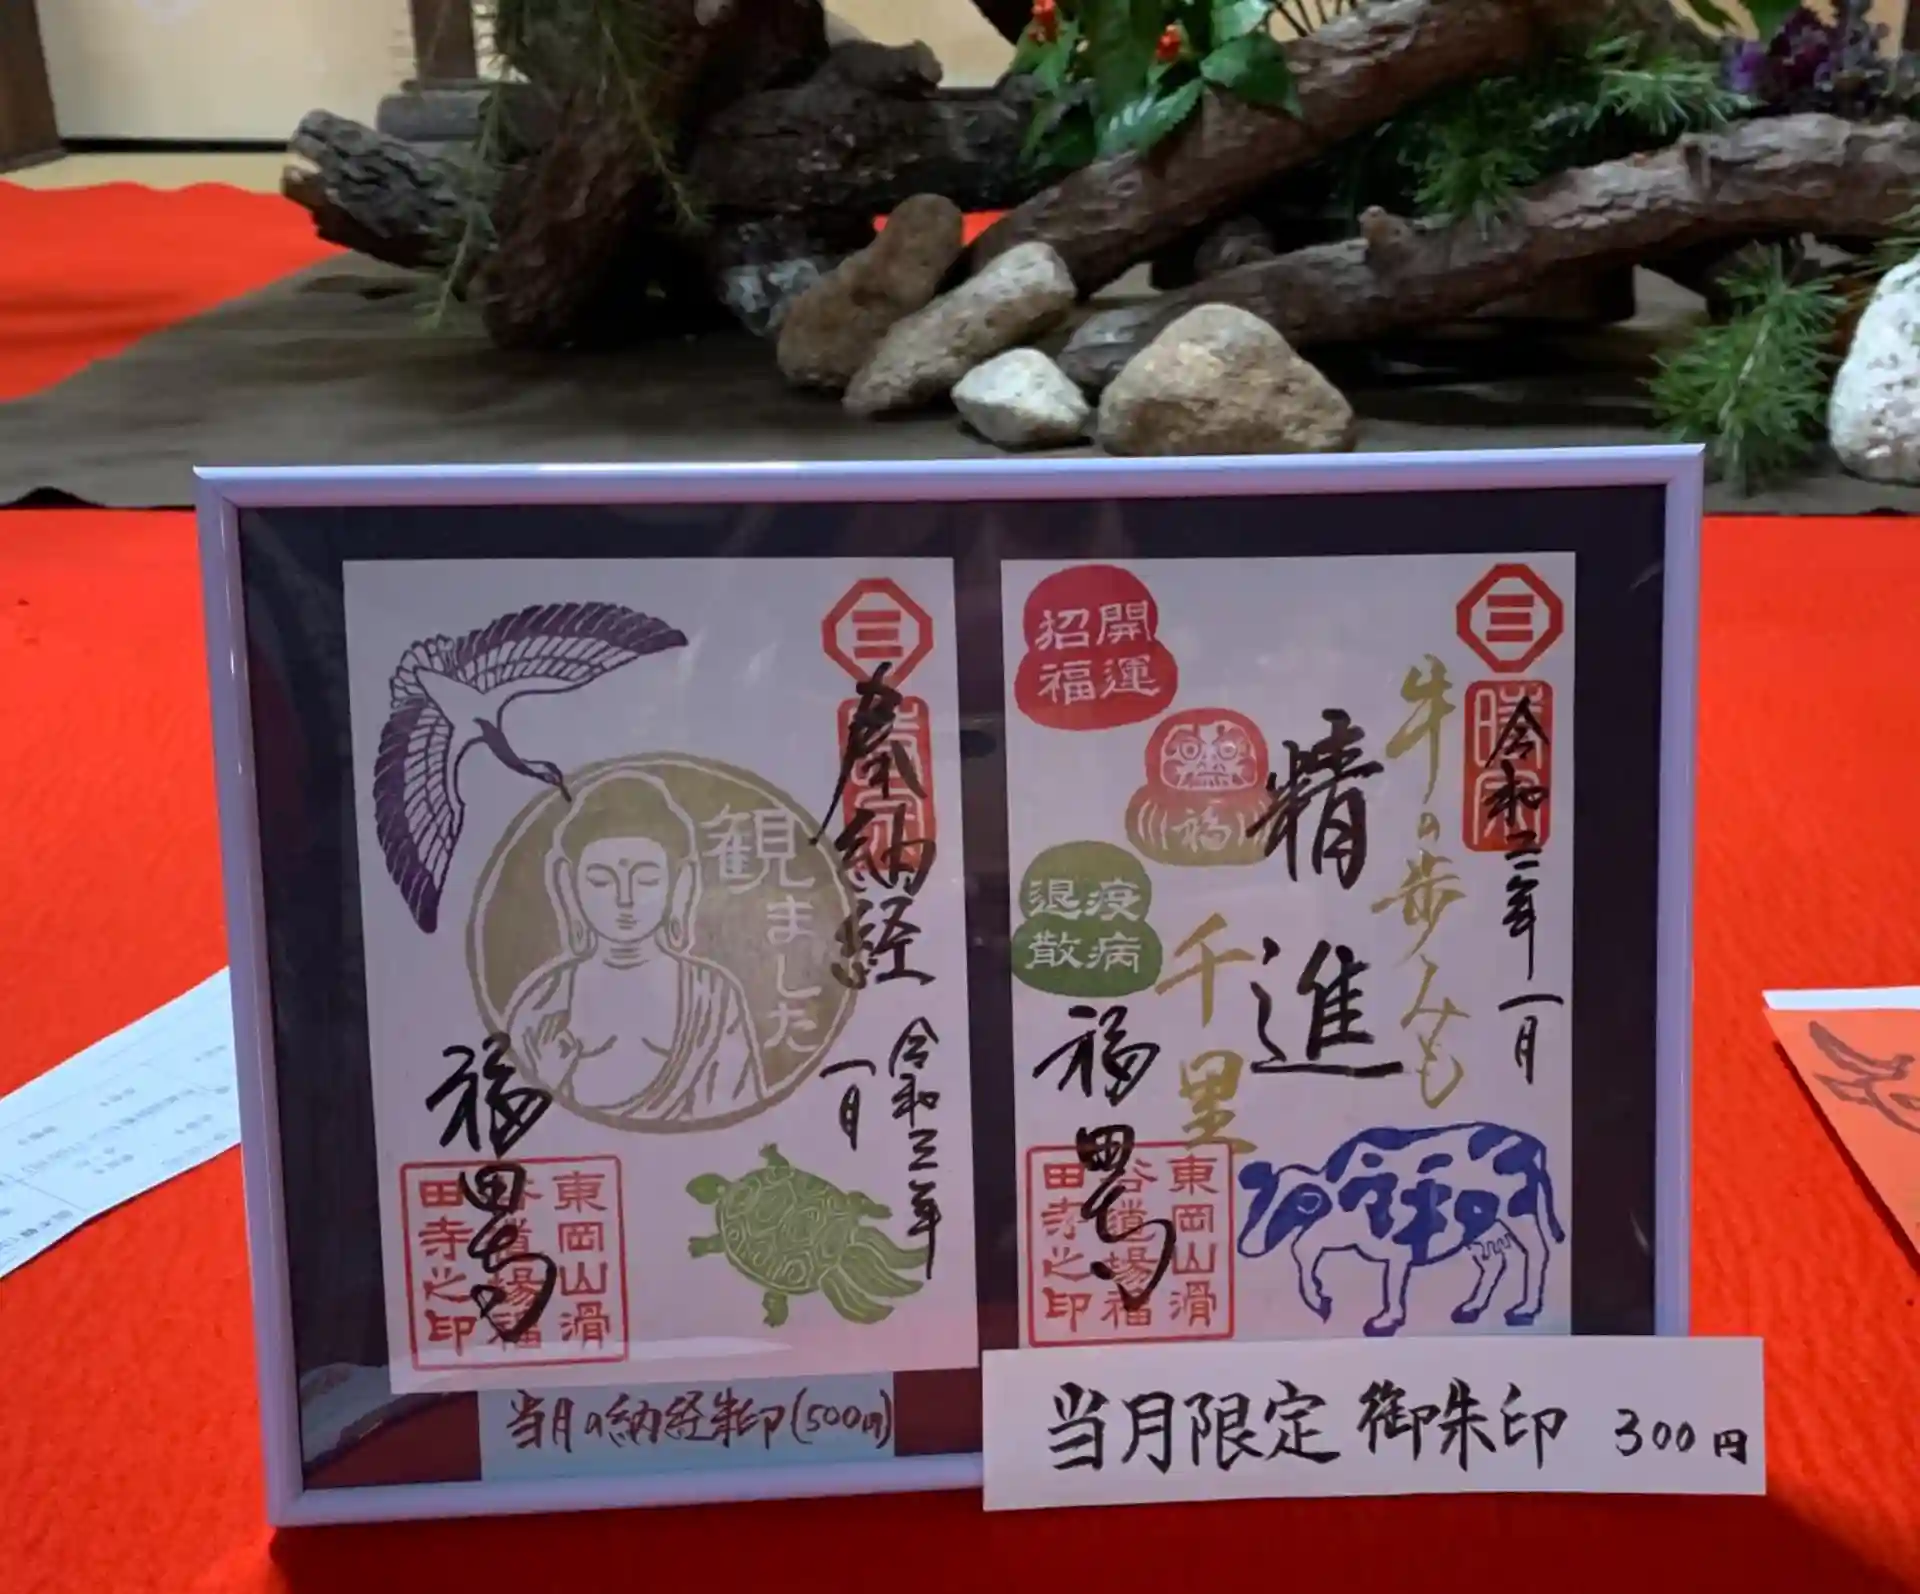 三
奉納経
令和三年
一月
観ました
福田寺
東岡山滑
谷道場福
田寺之印
三
令和三年一月
牛の歩みも
千里
精進
開運
招福
福
疫病
退散
福田寺
東岡山滑
谷道場福
田寺之印
当月の納経朱印(500円)
当月限定 御朱印 300円